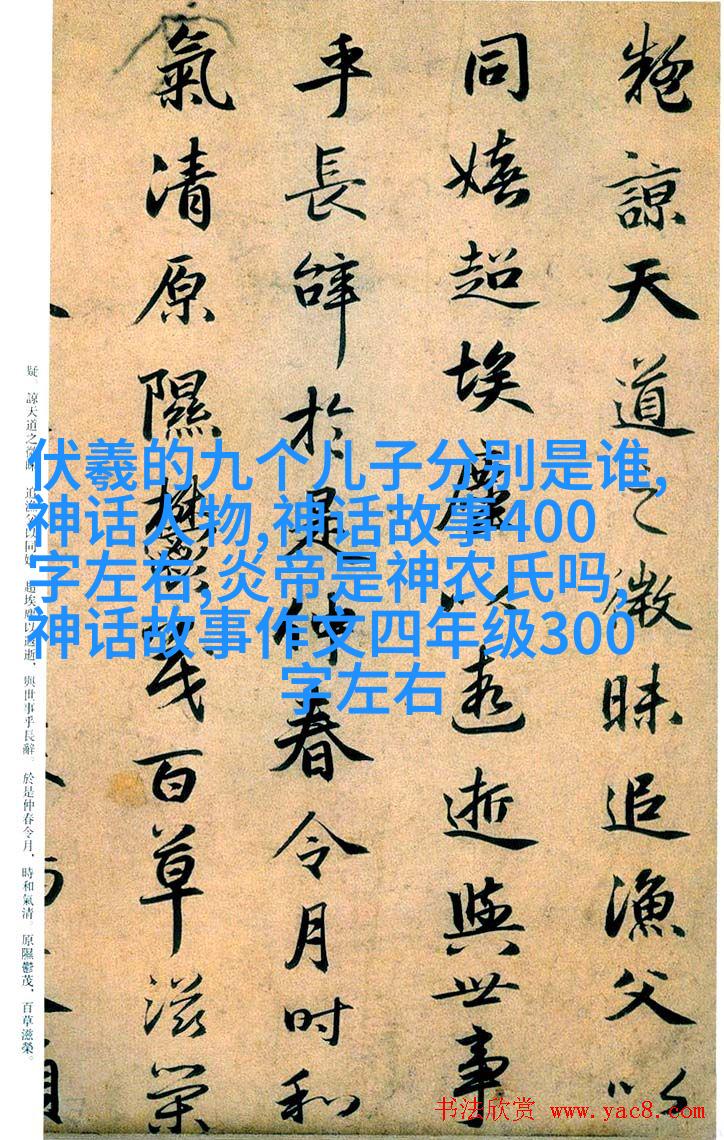 疑諒天道之微昧追漁父以
同嬉超埃塵以遐逝與世事
乎長辭於是仲春令月時和
氣清原隰鬱茂百草滋榮
疑。諒天道之微昧，追漁父以同嬉。超埃塵以遐逝，與世事乎長辭。於是仲春令月，時和氣清。原隰鬱茂，百草滋榮。
伏羲的九个儿子分别是谁,
神话人物,神话故事400
字左右,炎帝是神农氏吗,
神话故事作文四年级300
字左右
书法欣赏 www.yac8.com